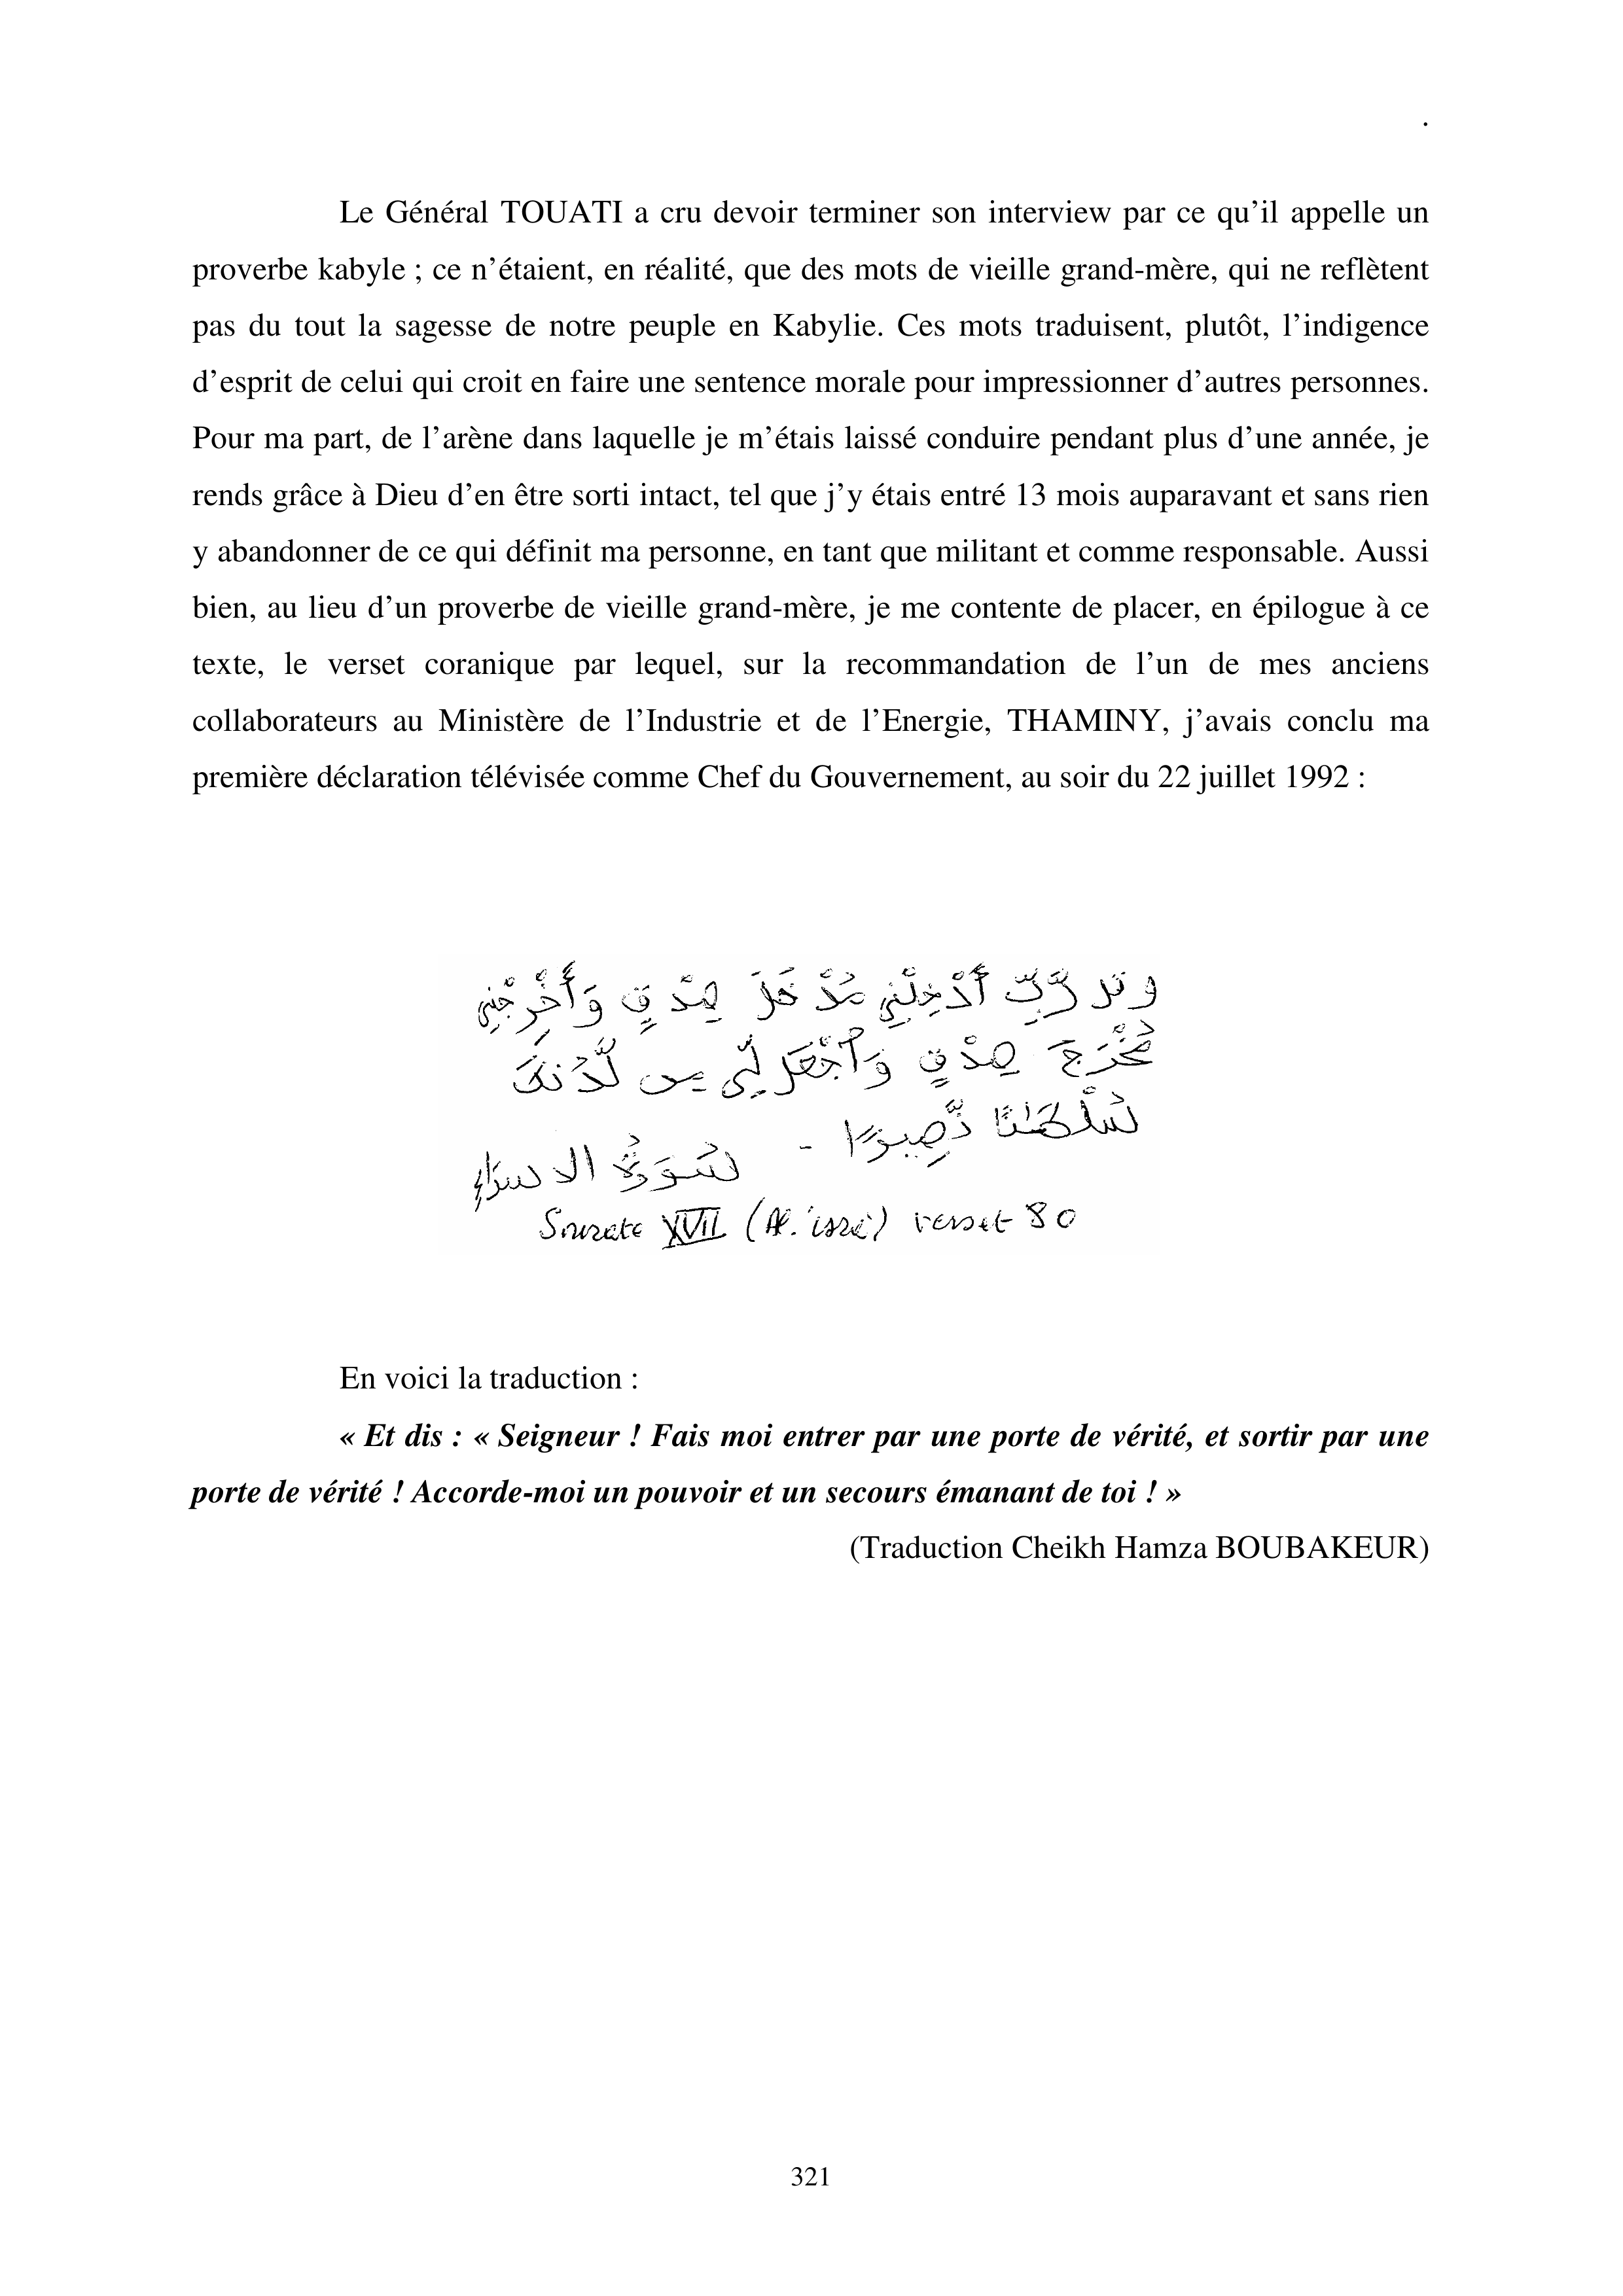 .
Le Général TOUATI a cru devoir terminer son interview par ce qu’il appelle un
proverbe kabyle ; ce n’étaient, en réalité, que des mots de vieille grand-mère, qui ne reflètent
pas du tout la sagesse de notre peuple en Kabylie. Ces mots traduisent, plutôt, l’indigence
d’esprit de celui qui croit en faire une sentence morale pour impressionner d’autres personnes.
Pour ma part, de l’arène dans laquelle je m’étais laissé conduire pendant plus d’une année, je
rends grâce à Dieu d’en être sorti intact, tel que j’y étais entré 13 mois auparavant et sans rien
y abandonner de ce qui définit ma personne, en tant que militant et comme responsable. Aussi
bien, au lieu d’un proverbe de vieille grand-mère, je me contente de placer, en épilogue à ce
texte, le verset coranique par lequel, sur la recommandation de l’un de mes anciens
collaborateurs au Ministère de l’Industrie et de l’Energie, THAMINY, j’avais conclu ma
première déclaration télévisée comme Chef du Gouvernement, au soir du 22 juillet 1992 :
وقل رَّبِّ أَدْخِلْنِي مُدْخَلَ صِدْقٍ وَأَخْرِجْنِي
مُخْرَجَ صِدْقٍ وَٱجْعَل لِّي مِن لَّدُنكَ
سُلْطَٰنًا نَّصِيرًا - سُورَةُ الاسراءِ
Sourate XVII (Al.'isrâ) verset 80
En voici la traduction :
« Et dis : « Seigneur ! Fais moi entrer par une porte de vérité, et sortir par une
porte de vérité ! Accorde-moi un pouvoir et un secours émanant de toi ! »
(Traduction Cheikh Hamza BOUBAKEUR)
321